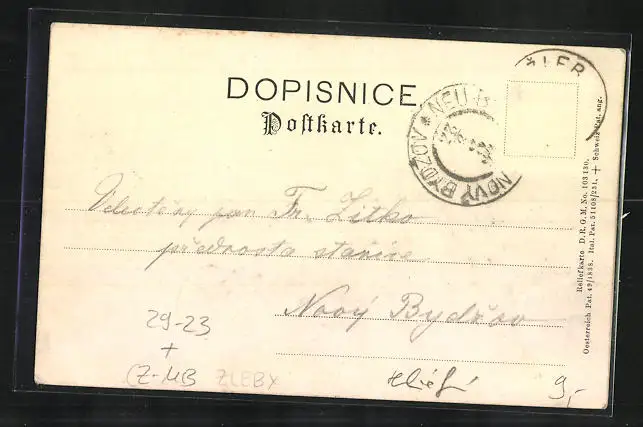 DOPISNICE
Postkarte.
NEU B
NOVÝ BYDŽOV
Veloctěný pan Fr. Zitko
přednosta stanice
Nový Bydžov
29-23
+
CZ-MB ZLEBY
9,-
Reliefkarte D. R. G. M. No. 103 130. + Schweiz Pat. ang.
Oesterreich Pat. 49/1838. Ital. Pat. 51108/231.